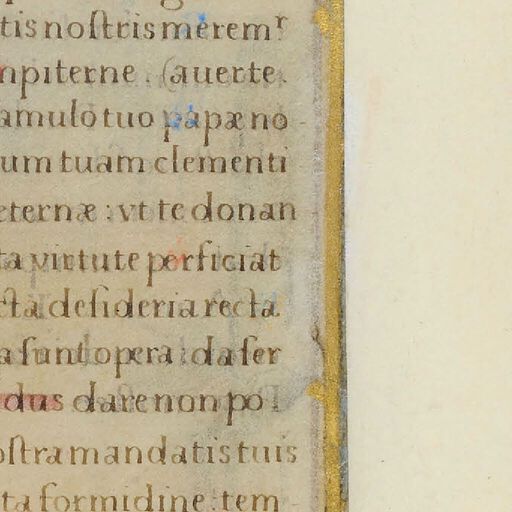 tis noſtris merem᷑
npiterne. Gauerte
amulo tuo papæ no
um tuam clementi
eternæ: vt te donan
ta virtute perficiat
cta deſideria recta
a ſunt opera: da ſer
dus dare non po
oſtra mandatis tuis
ta formidine: tem